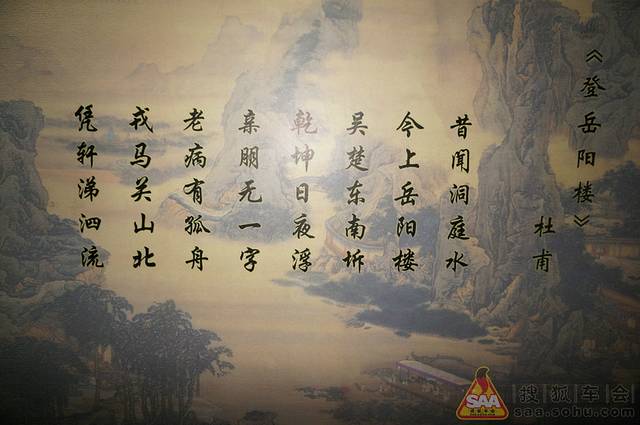 《登岳阳楼》
杜甫
昔闻洞庭水
今上岳阳楼
吴楚东南坼
乾坤日夜浮
亲朋无一字
老病有孤舟
戎马关山北
凭轩涕泗流
SAA
搜狐车会
saa.sohu.com